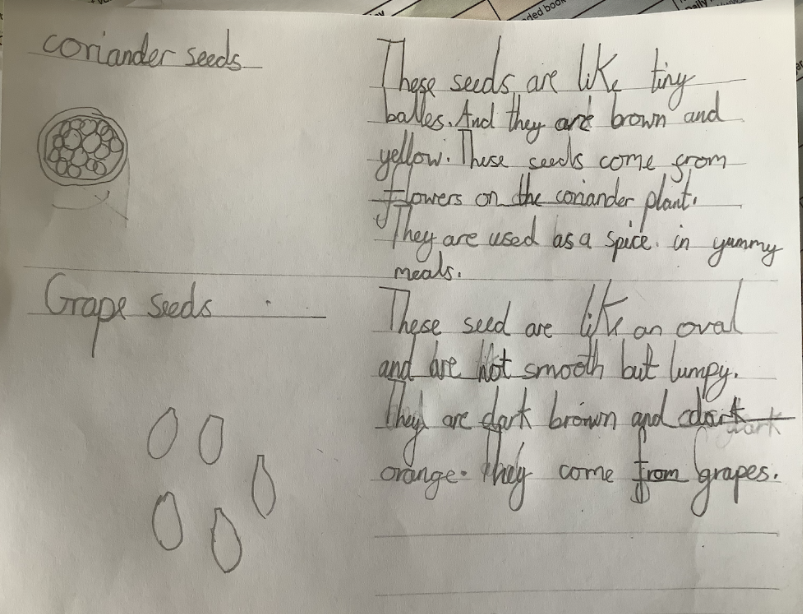 coriander seeds
These seeds are like tiny
balles. And they are brown and
yellow. These seeds come from
flowers on the coriander plant.
They are used as a spice. in yummy
meals.
Grape seeds
These seed are like an oval
and are not smooth but lumpy.
They are dark brown and dark
orange. They come from grapes.